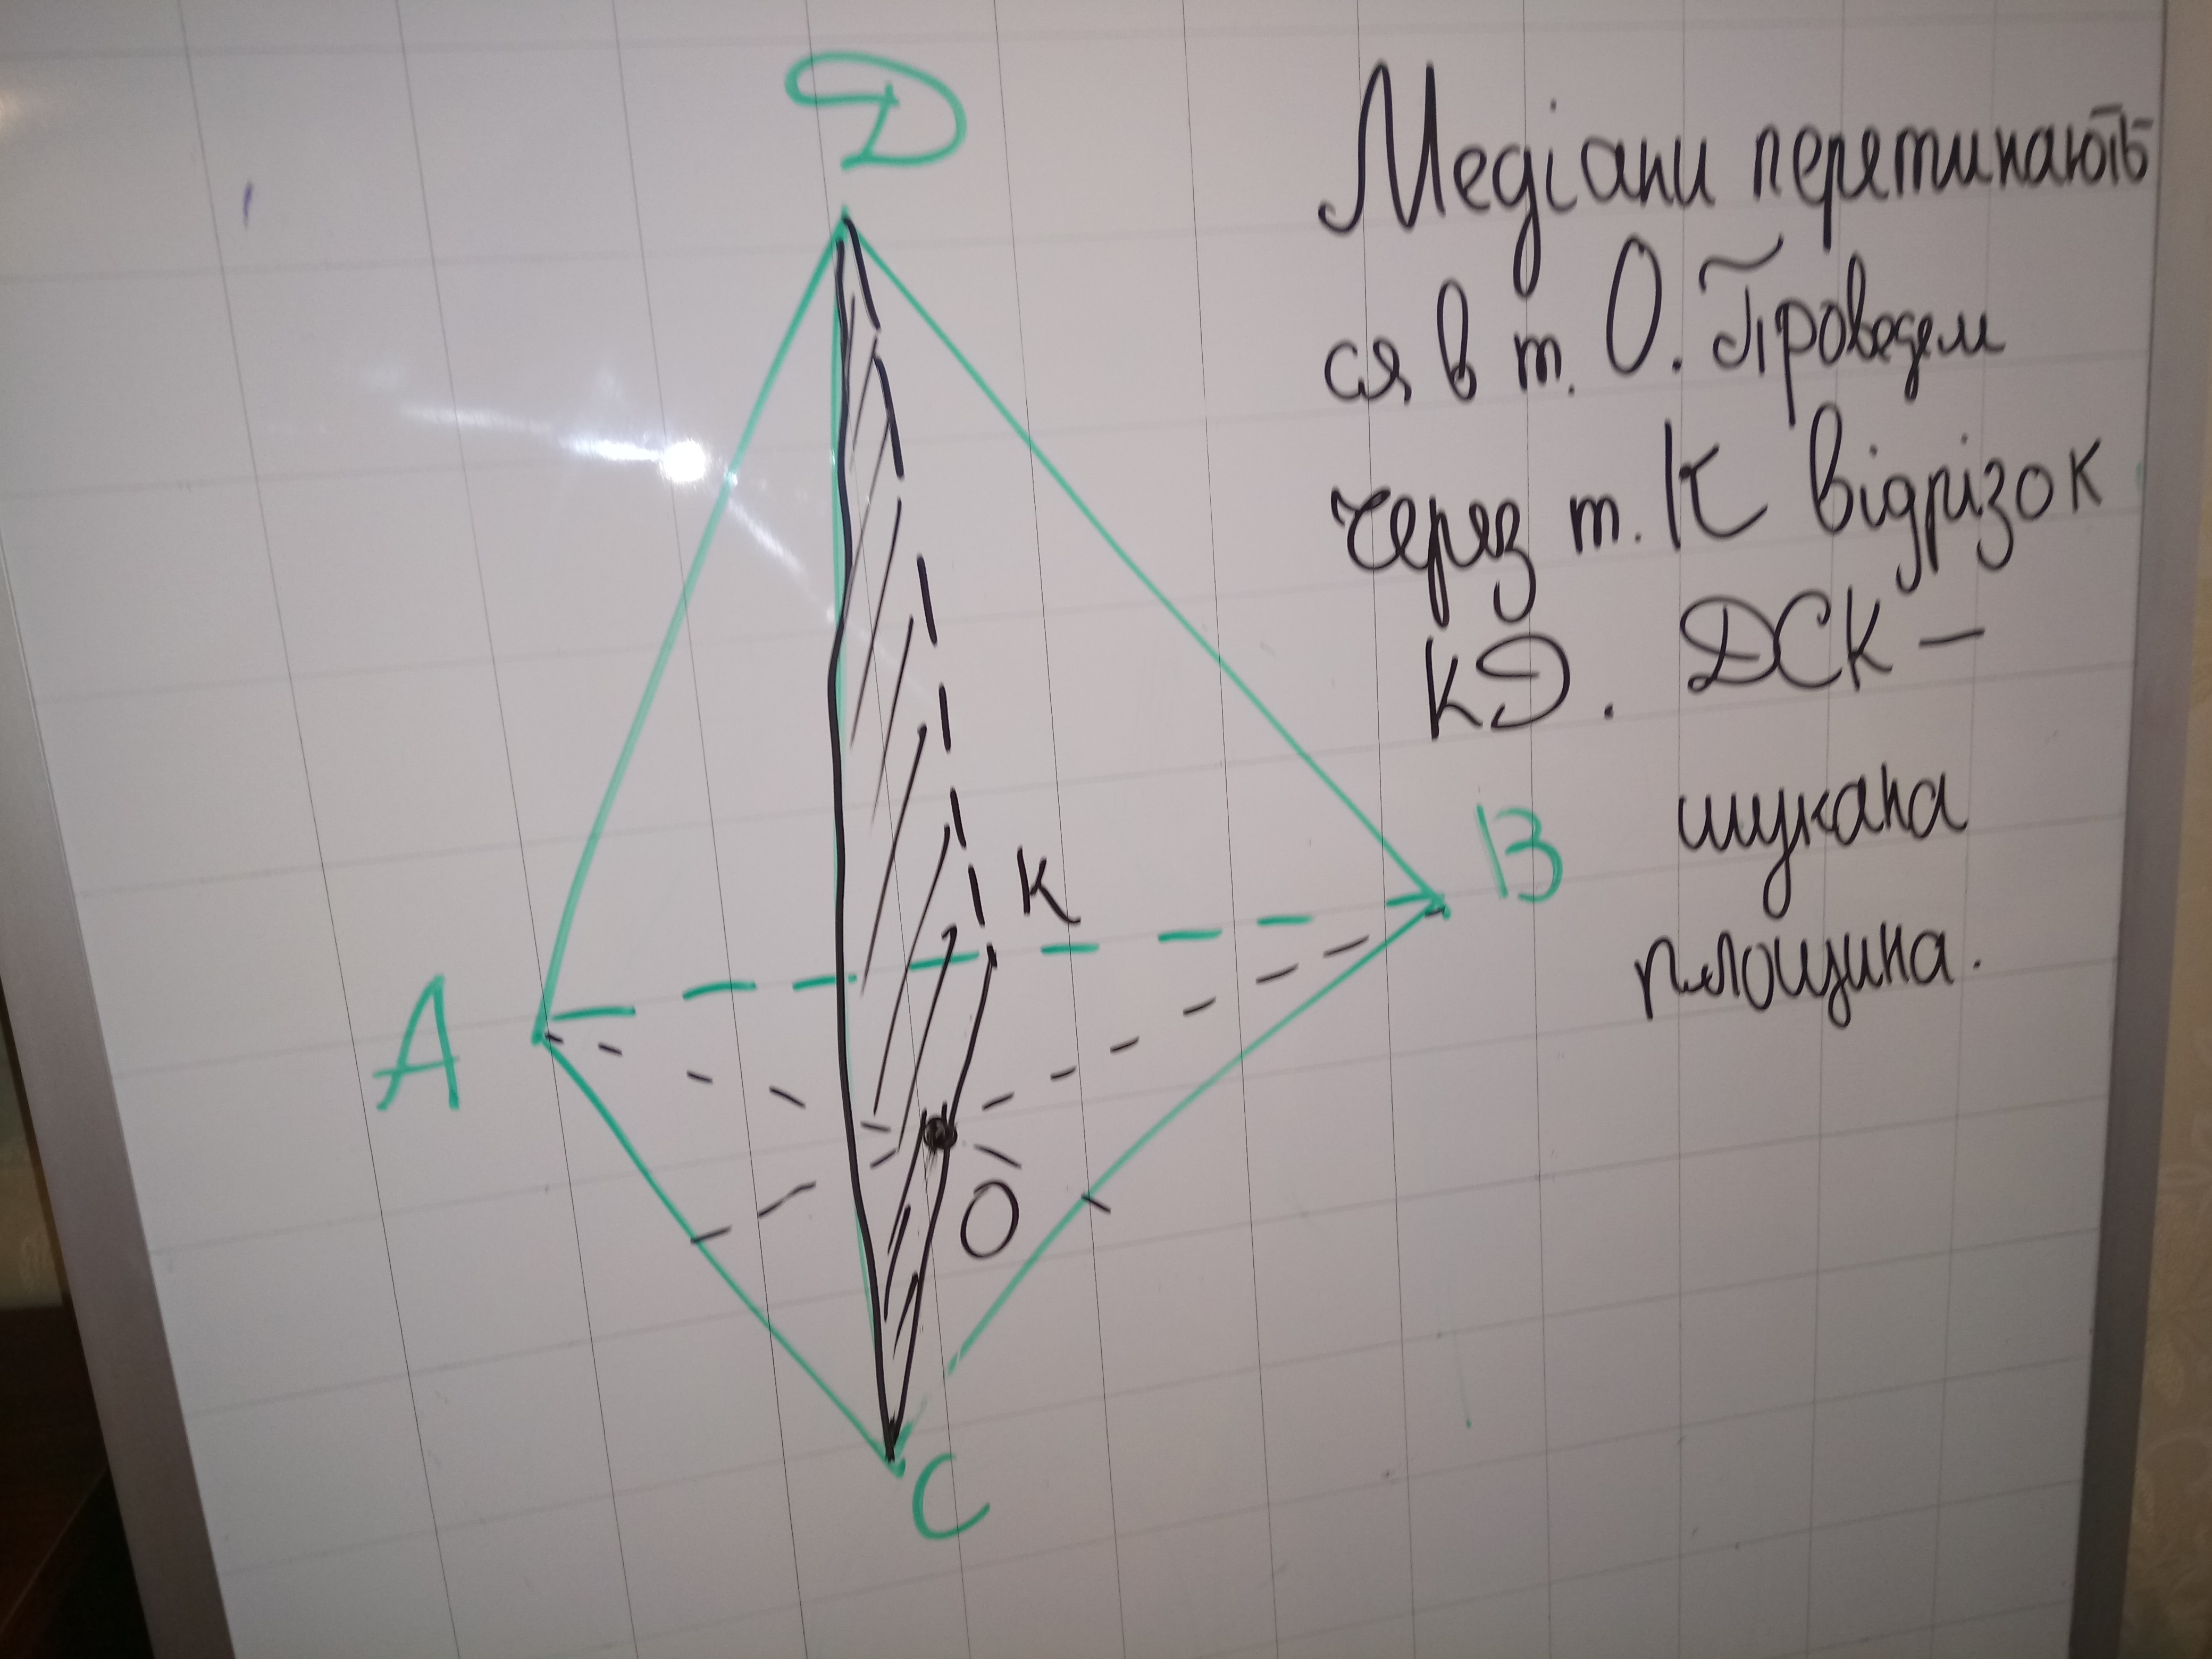 D
Медіани перетинають
ся в т. О. Проведем
через т. К відрізок
КD. DСК –
шукана
площина.
К
В
А
О
С